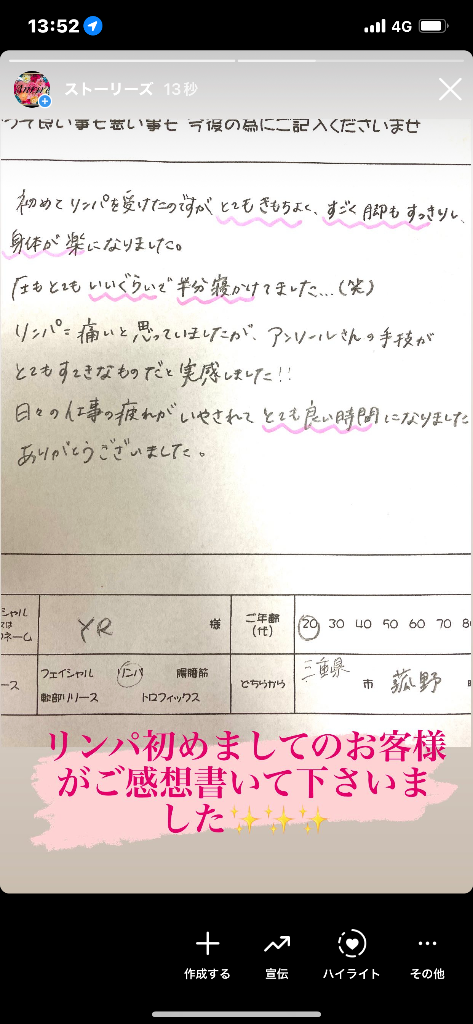 13:52
4G
ストーリーズ 13秒
って良い事も悪い事も 今後の為にご記入くださいませ
初めてリンパを受けたのですが とてもきもちよく、すごく脚もすっきりし、
身体が楽になりました。
圧もとてもいいぐらいで半分寝かけてました…(笑)
リンパ=痛いと思っていましたが、アンソールさんの手技が
とてもすてきなものだと実感しました!!
日々の仕事の疲れがいやされて とても良い時間になりました
ありがとうございました。
シャル
又は
ネーム
YR 様
ご年齢
(代)
20 30 40 50 60 70 8
ース
フェイシャル リンパ 腸腰筋
軟部リリース トロフィックス
どちらから
三重県 市 菰野
リンパ初めましてのお客様
がご感想書いて下さいま
した✨✨✨
作成する 宣伝 ハイライト その他